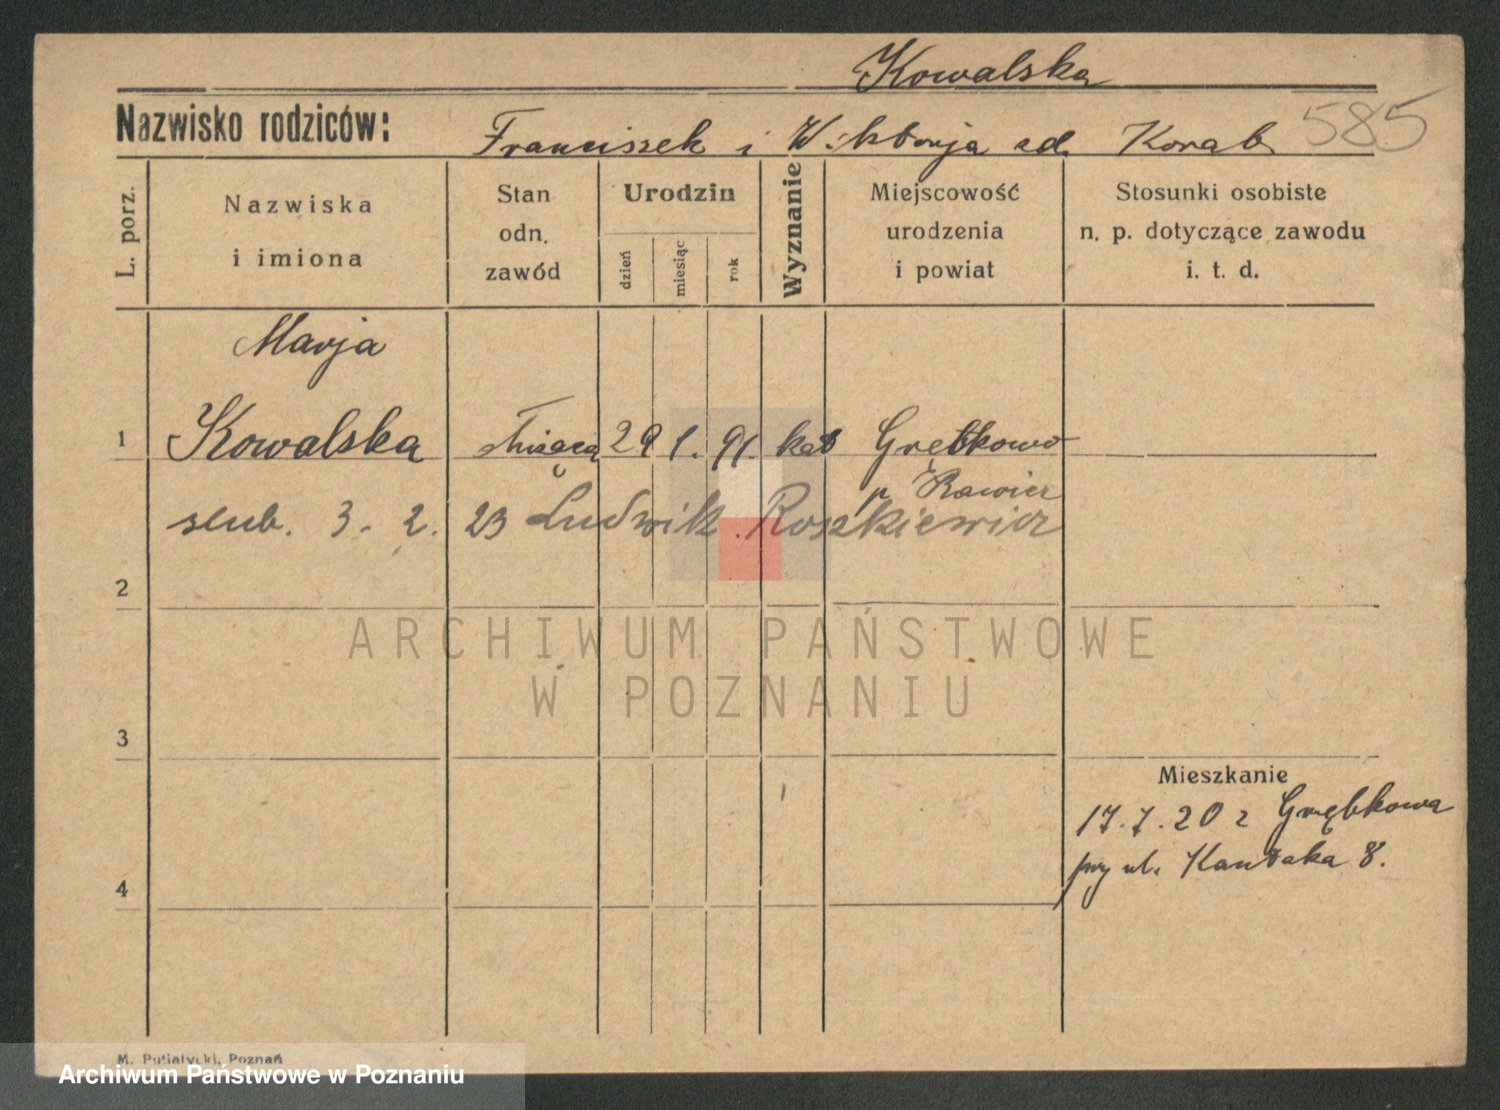 Kowalska
Nazwisko rodziców: Franciszek i Wiktorja od. Korab 585
L. porz.
Nazwiska i imiona
Stan odn. zawód
Urodzin
dzień
miesiąc
rok
Wyznanie
Miejscowość urodzenia i powiat
Stosunki osobiste n. p. dotyczące zawodu i. t. d.
Marja
1 Kowalska służąca 29 1. 91. kat Grębkowo
p. Rawicz
slub. 3. 2. 23 Ludwik Roszkiewicz
2
ARCHIWUM PAŃSTWOWE
W POZNANIU
3
Mieszkanie
17. 7. 20 z Grębkowa
przy ul. Kantaka 8.
4
M. Putiatycki, Poznań
Archiwum Państwowe w Poznaniu